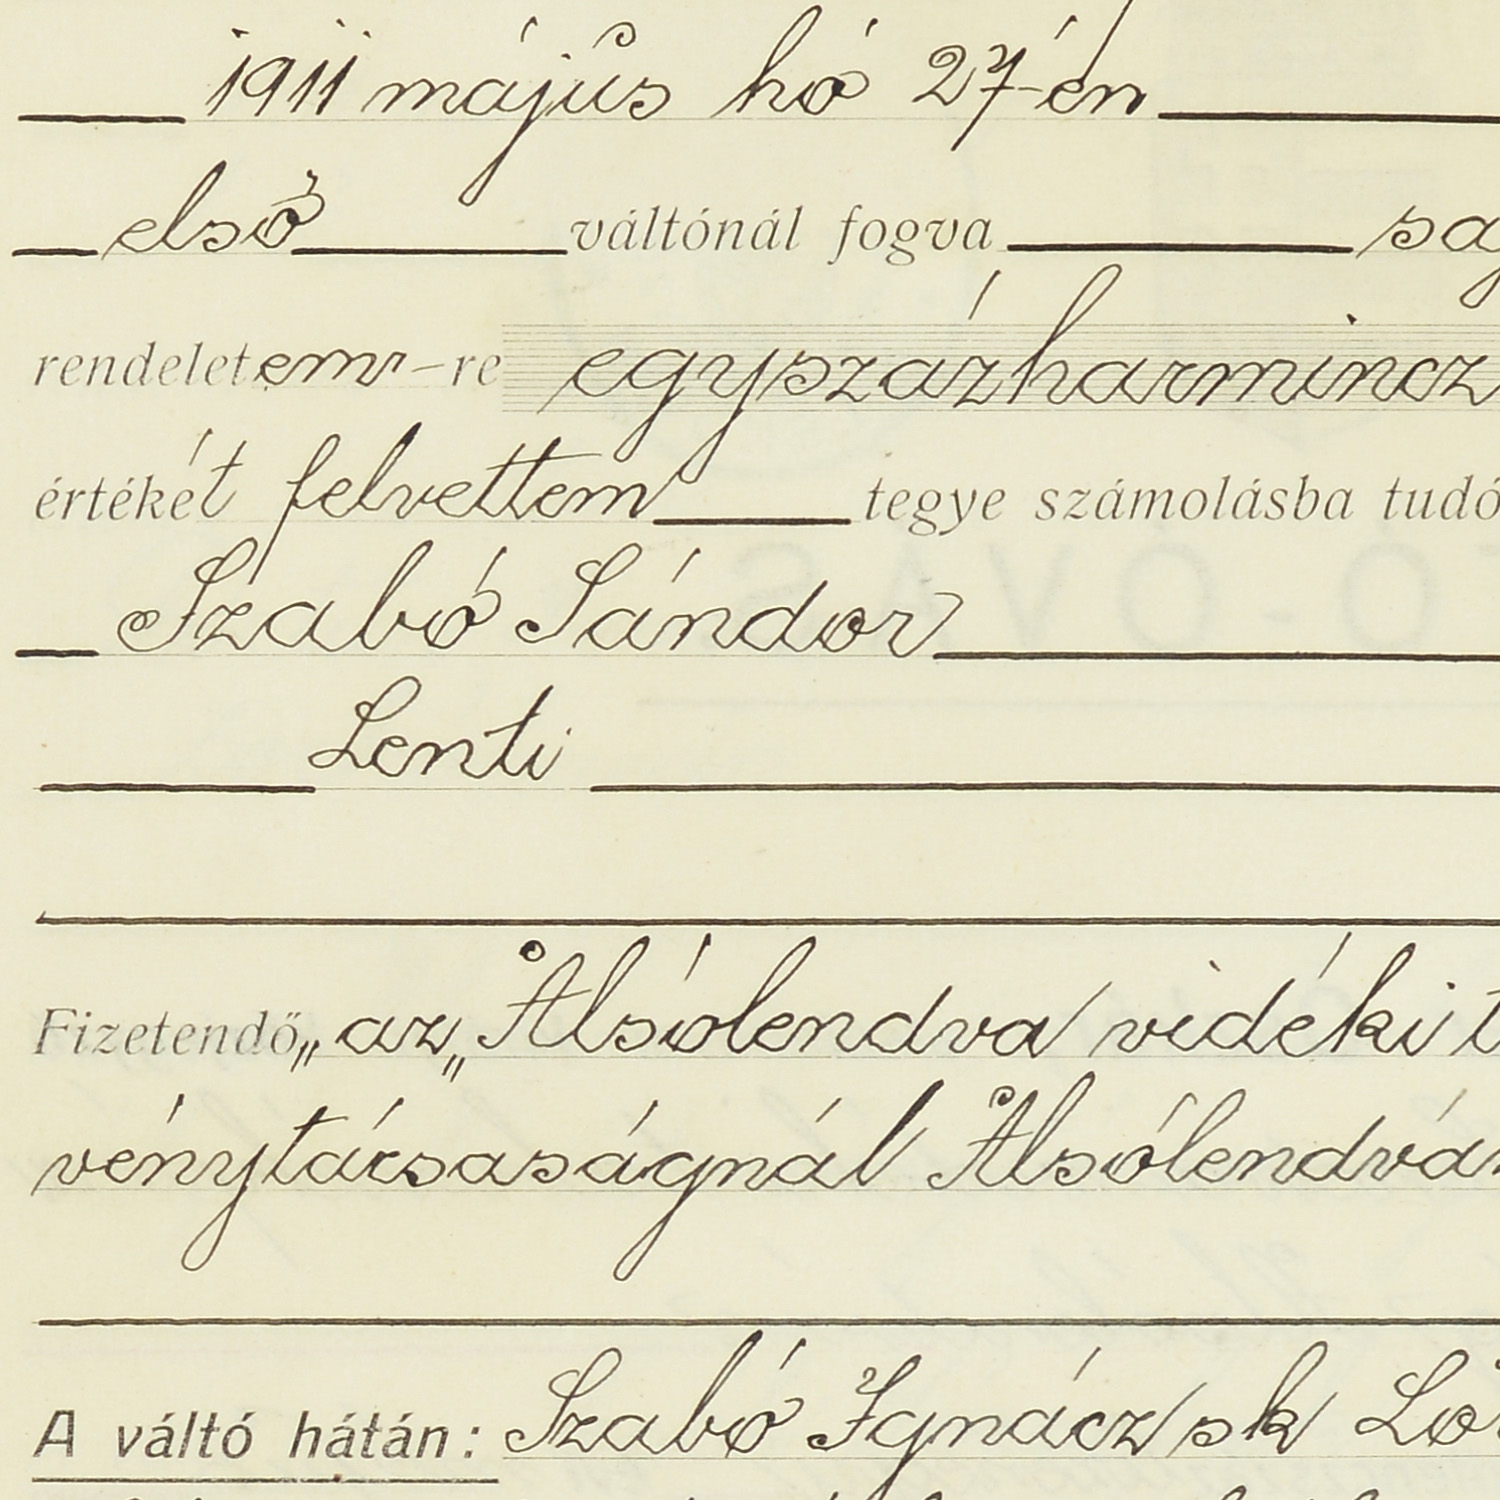 1911 május hó 27-én
első váltónál fogva
rendeletem-re egyszázharmincz
értékét felvettem tegye számolásba tudó
Szabó Sándor
Lenti
Fizetendő „az„ Alsólendva vidéki
vénytársaságnál Alsólendván
A váltó hátán: Szabó Ignácz sk